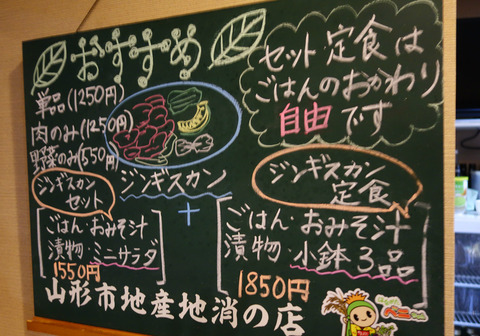 おすすめ
単品(1250円)
肉のみ(1250円)
野菜のみ(550円)
ジンギスカン
セット定食は
ごはんのおかわり
自由です
ジンギスカン
セット
ごはん・おみそ汁
漬物・ミニサラダ
1550円
+
ジンギスカン
定食
ごはん・おみそ汁
漬物・小鉢3品
1850円
山形市地産地消の店